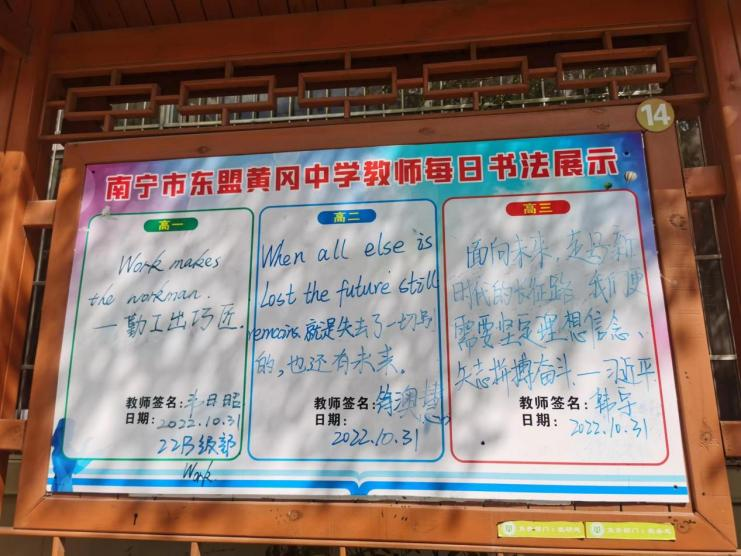 14
南宁市东盟黄冈中学教师每日书法展示
高一
Work makes
the workman.
—勤工出巧匠.
教师签名:韦日昭
日期: 2022.10.31
22级部
Work
高二
When all else is
Lost the future still
remains 就是失去了一切别
的,也还有未来.
教师签名:
日期:
2022.10.31
高三
面向未来,走好新
时代的长征路,我们更
需要坚定理想信念、
矢志拼搏奋斗.—习近平
教师签名:韩宇
日期: 2022.10.31